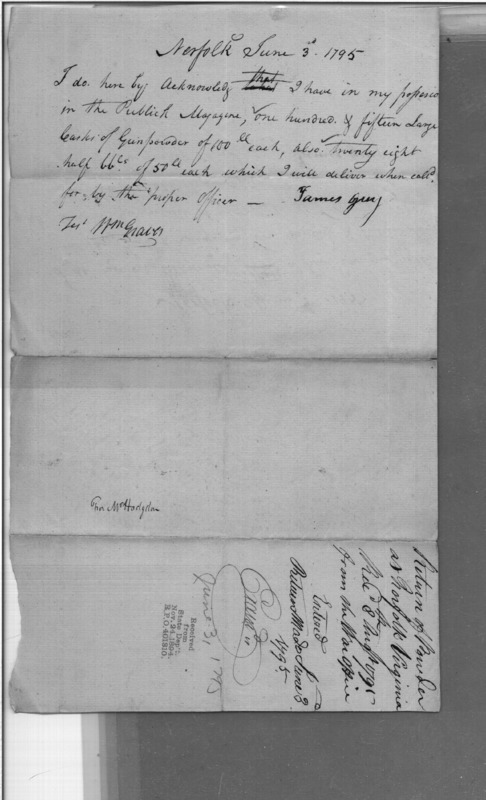 Norfolk June 3d. 1795
I do here by Acknowledg that I have in my possesio
in the Publick Magazine, one hundred & fifteen Large
Casks of Gunpowder of 100 lb each, also twenty eight
half bbls of 50 lb each which I will deliver when calld.
for, by the proper Officer — James Grey
Test Wm Graves
Mr Hodgdon
Return of Powder
at Norfolk Virginia
Rec'd 8
from the War Office
Entered
Return Made June 3
1795
June 3, 1795
Received
from
State Dep't.
Nov. 24, 1894.
R.P.O. 401810.